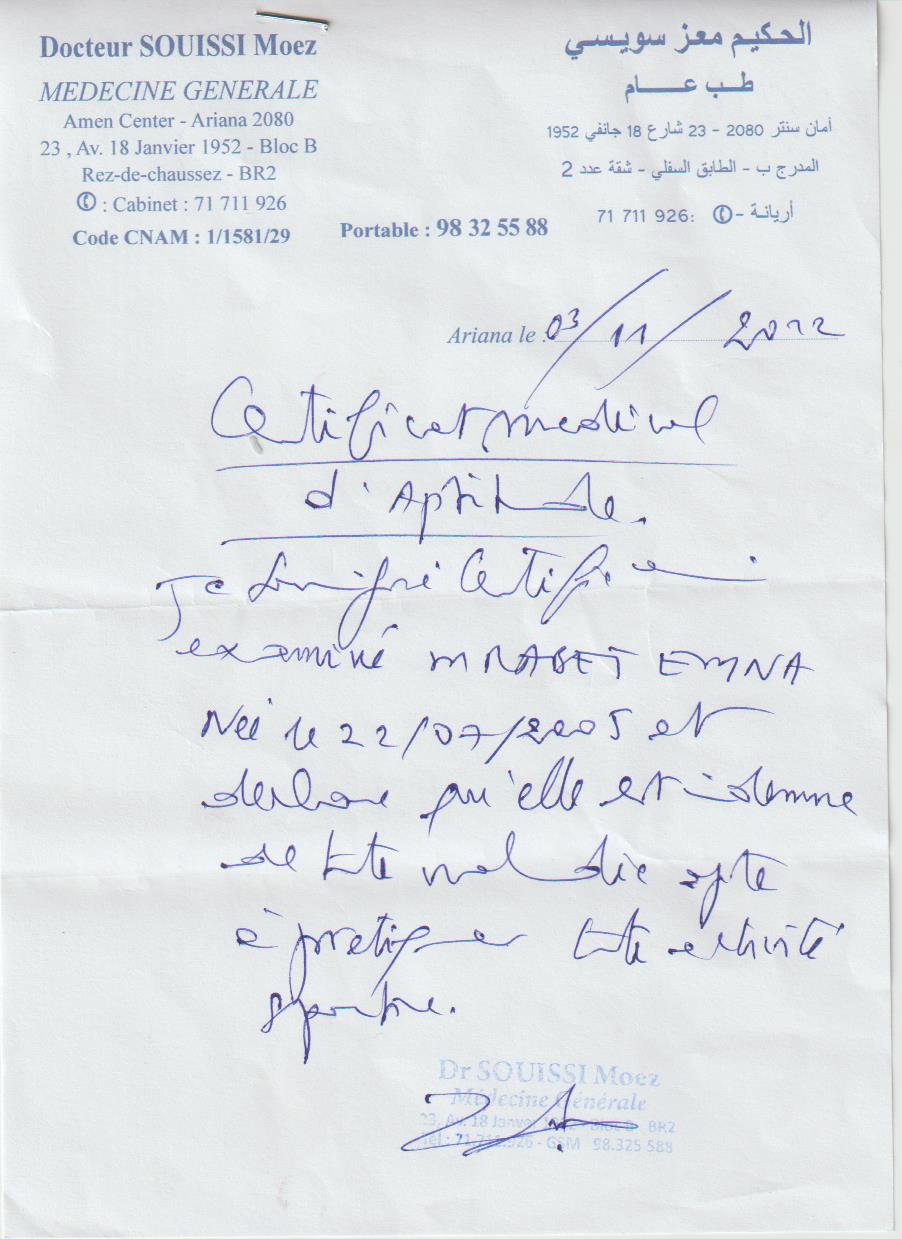 Docteur SOUISSI Moez
MEDECINE GENERALE
Amen Center - Ariana 2080
23 , Av. 18 Janvier 1952 - Bloc B
Rez-de-chaussez - BR2
✆ : Cabinet : 71 711 926
Code CNAM : 1/1581/29
Portable : 98 32 55 88
الحكيم معز سويسي
طب عام
أمان سنتر 2080 - 23 شارع 18 جانفي 1952
المدرج ب - الطابق السفلي - شقة عدد 2
أريانة - ✆ :71 711 926
Ariana le : 03/11/2022
Certificat medical
d'Aptitude.
Je soussigné Certifie
examiné MRABET EMNA
Née le 22/07/2005 et
declare qu'elle est indemne
de toute maladie apte
à pratiquer toute activité
sportive.
Dr SOUISSI Moez
Médecine Générale
23, Av. 18 Janvier 1952 - Bloc B - BR2
Tél : 71.711.926 - GSM 98.325 588